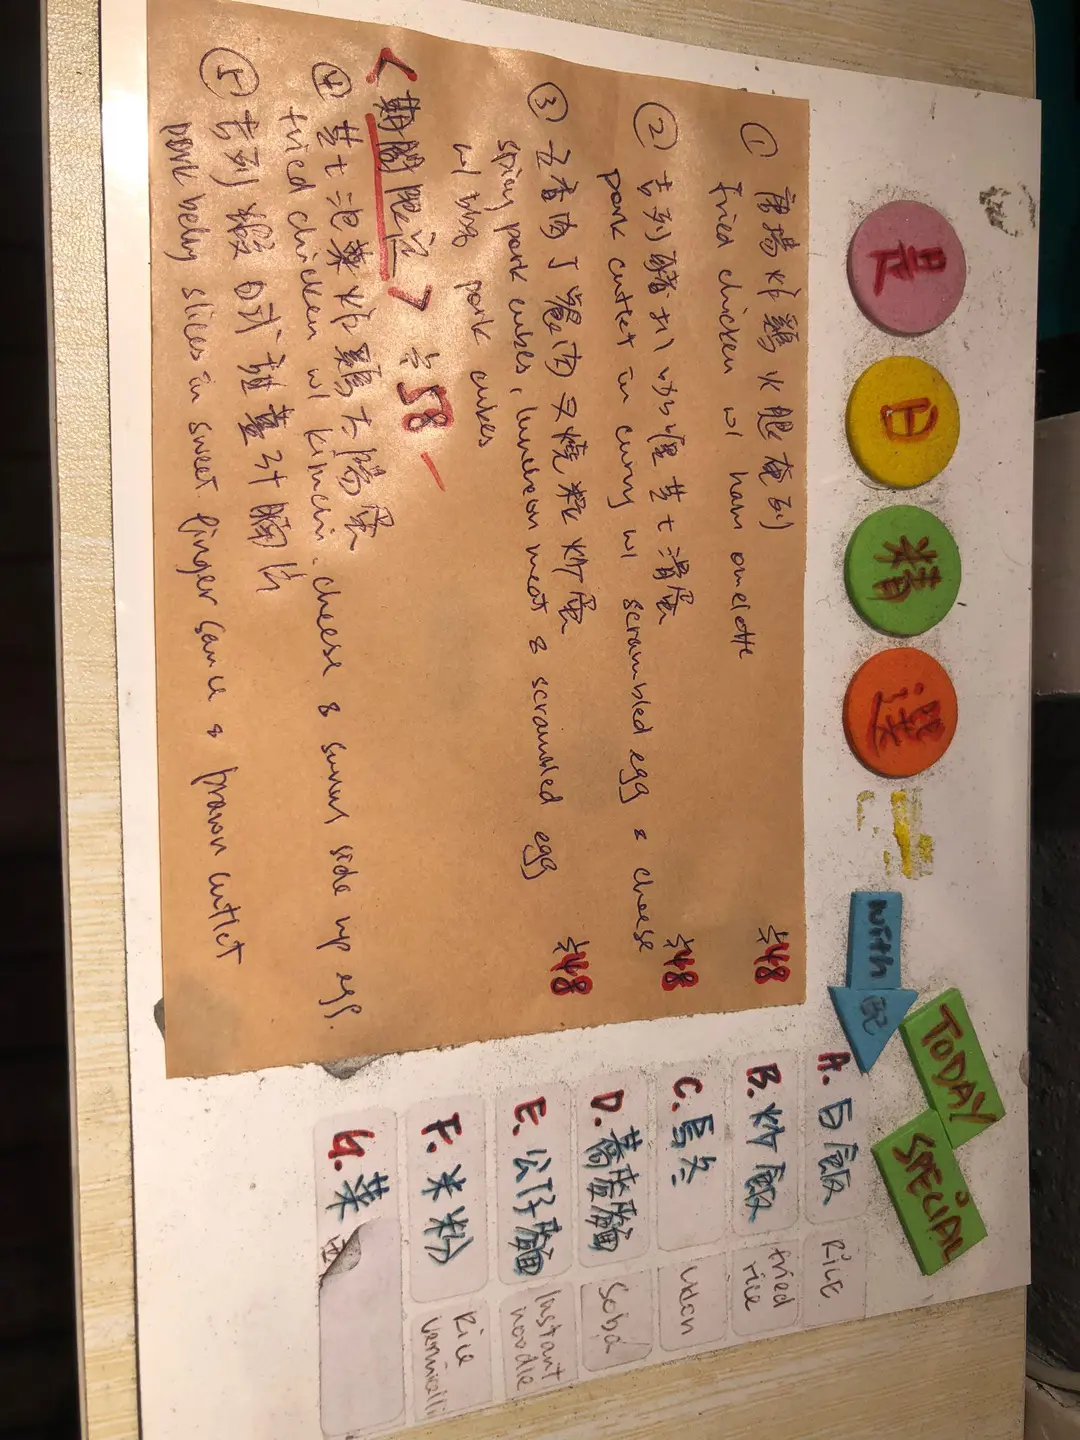 是日精選
with 配
TODAY
SPECIAL
① 唐揚炸鷄火腿奄列 $48
fried chicken w/ ham omelette
② 吉列豬扒咖喱芝士滑蛋 $48
pork cutlet in curry w/ scrambled egg & cheese
③ 五香肉丁餐肉叉燒粒炒蛋 $48
spicy pork cubes, luncheon meat & scrambled egg
w/ bbq pork cubes
<期間限定> $58
④ 芝士泡菜炸鷄太陽蛋
fried chicken w/ kimchi. cheese & sunny side up egg.
⑤ 吉列蝦日式甜薑汁腩片
pork belly slices in sweet finger sauce & prawn cutlet
A. 白飯 Rice
B. 炒飯 fried rice
C. 烏冬 udon
D. 蕎麥麵 Soba
E. 公仔麵 Instant noodle
F. 米粉 Rice vermicelli
G. 菜